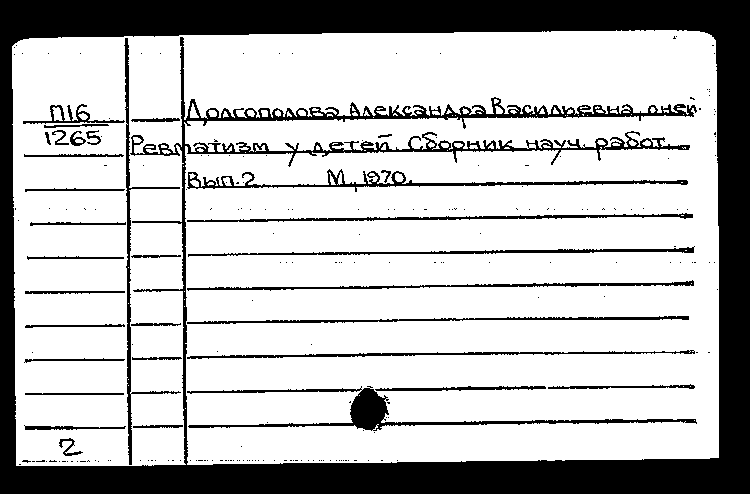 П16
1265
Долгополова, Александра Васильевна, о ней
Ревматизм у детей. Сборник науч. работ.
Вып. 2 М., 1970.
2